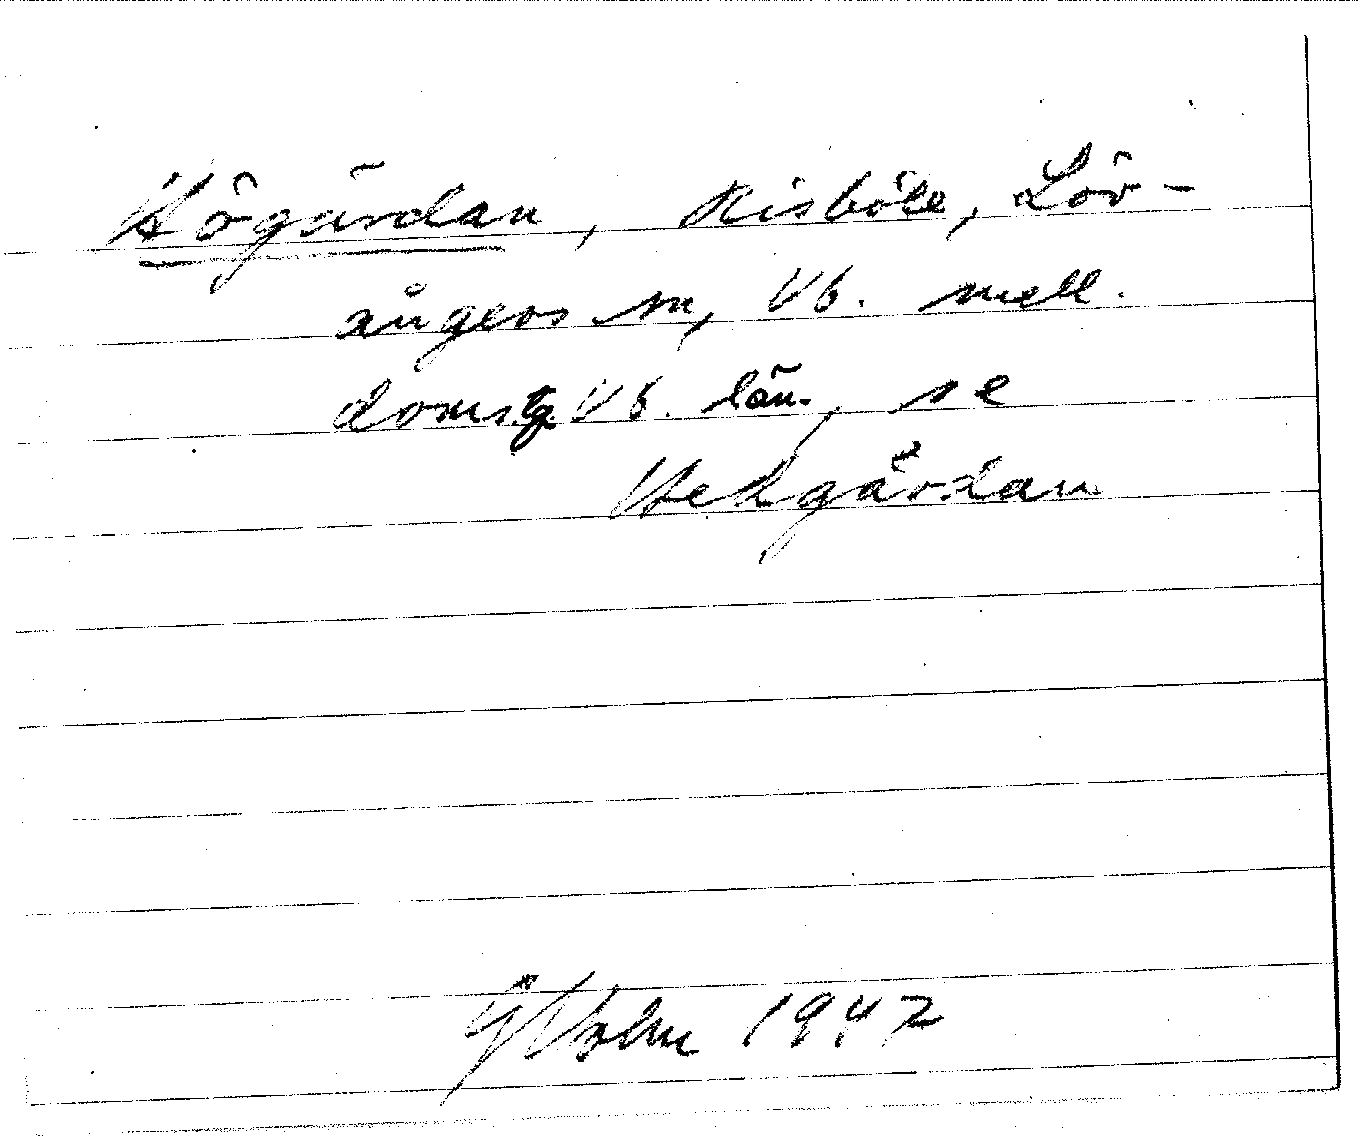 Högärdan, Risböle, Löv-
ångers sn, Vb. mell.
doms.tg. Vb. län, se
Hekgärdan
G Holm 1947